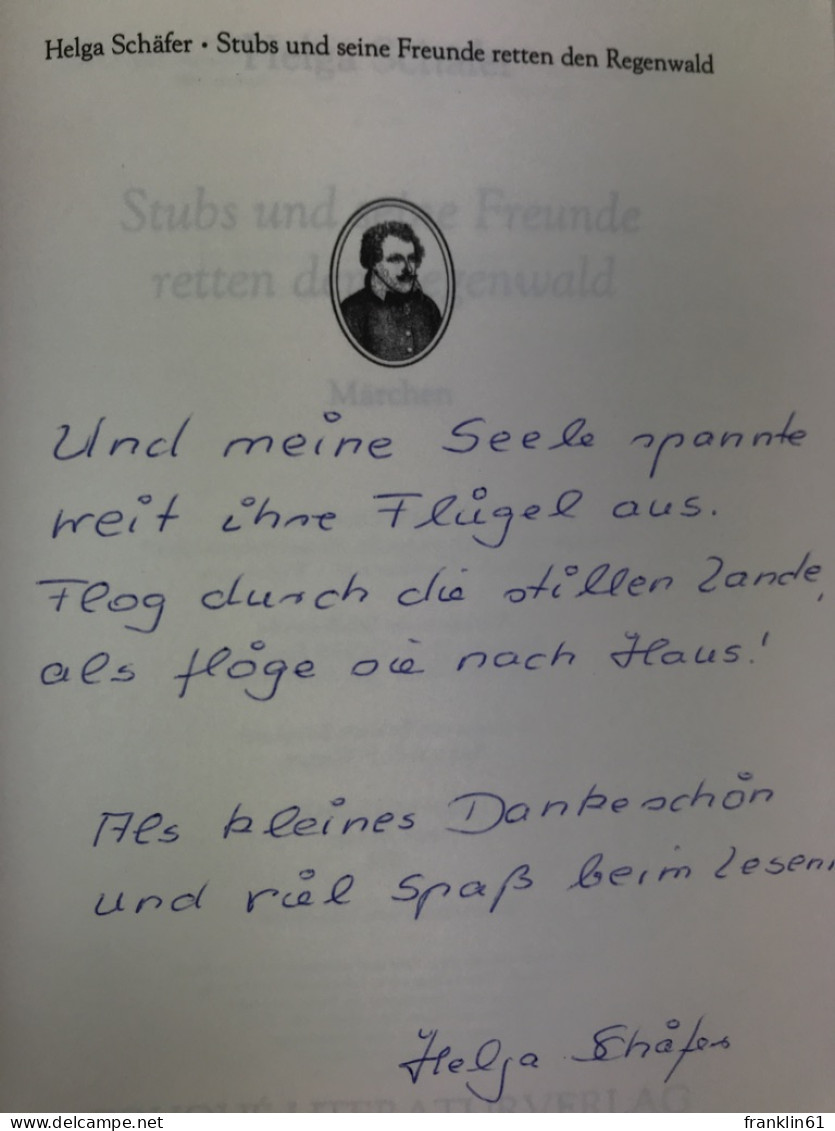 Helga Schäfer • Stubs und seine Freunde retten den Regenwald
Stubs und seine Freunde
retten den Regenwald
Märchen
Und meine Seele spannte
weit ihre Flügel aus.
Flog durch die stillen Lande,
als flöge sie nach Haus!
Als kleines Dankeschön
und viel Spaß beim Lesen
Helga Schäfer
LITERATURVERLAG
franklin61